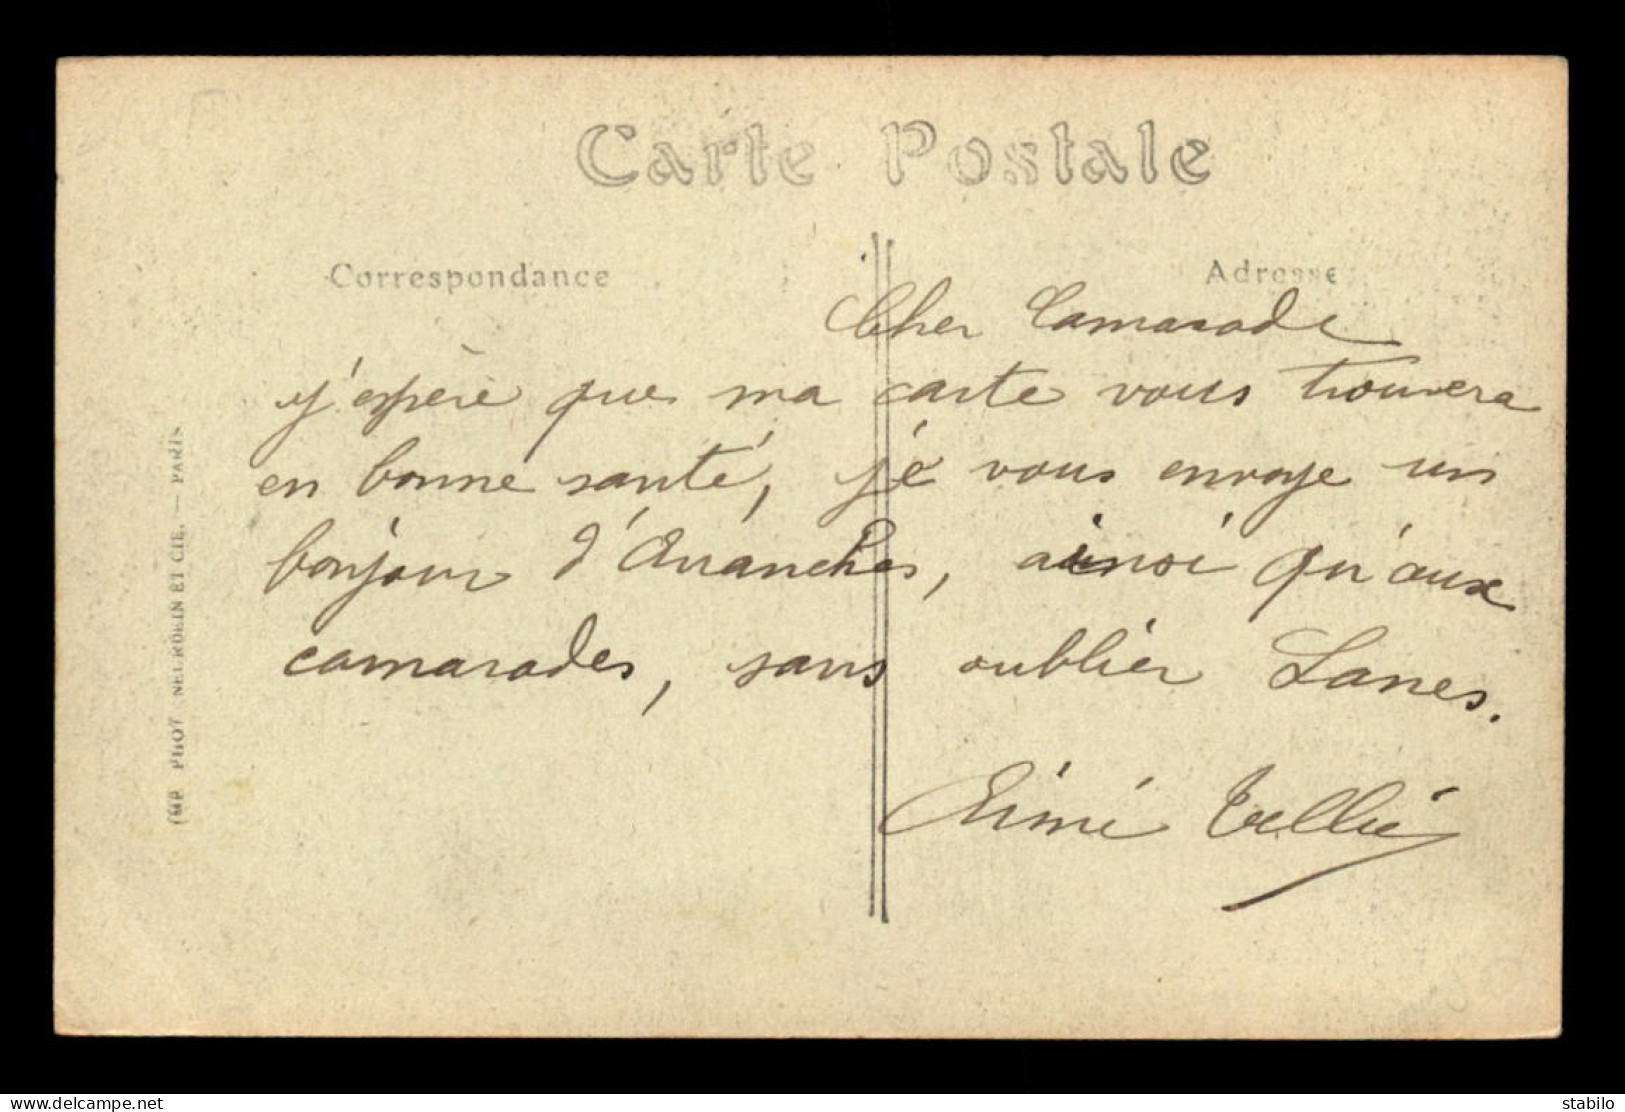 Carte Postale
Correspondance
Adresse
Cher Camarade
j'espère que ma carte vous trouvera
en bonne santé, je vous envoye un
bonjour d'Avranches, ainsi qu'aux
camarades, sans oublier Lanes.
Aimé Tellié
IMP. PHOT. NEURDEIN ET CIE. — PARIS
www.delcampe.net
stabilo